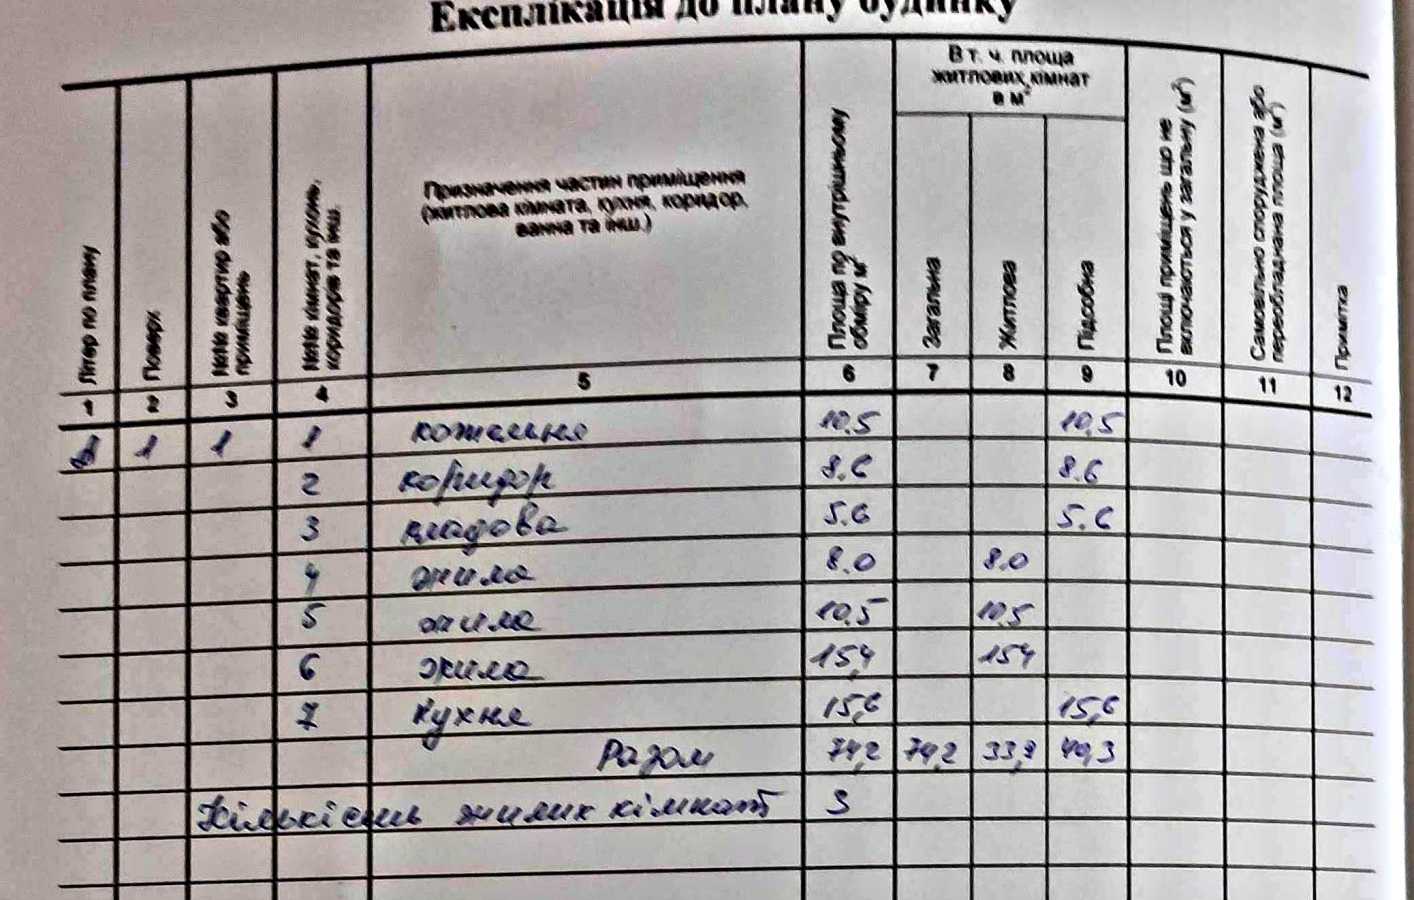 Експлікація до плану будинку
Літер по плану
Поверх
№№ квартир або
приміщень
№№ кімнат, кухонь,
коридорів та інш.
Призначення частин приміщення
(житлова кімната, кухня, коридор,
ванна та інш.)
Площа по внутрішньому
обміру м²
В т. ч. площа
житлових кімнат
в м²
Загальна
Житлова
Підсобна
Площі приміщень що не
включаються у загальну (м²)
Самовільно споруджена або
переобладнана площа (м²)
Примітка
1 2 3 4 5 6 7 8 9 10 11 12
1 1 1 котельня 10.5 10.5
2 коридор 8.6 8.6
3 кладова 5.6 5.6
4 жила 8.0 8.0
5 жила 10,5 10,5
6 жила 15,4 154
7 кухня 15,6 15,6
Разом 74,2 74,2 33,9 40,3
Кількість жилих кімнат 3